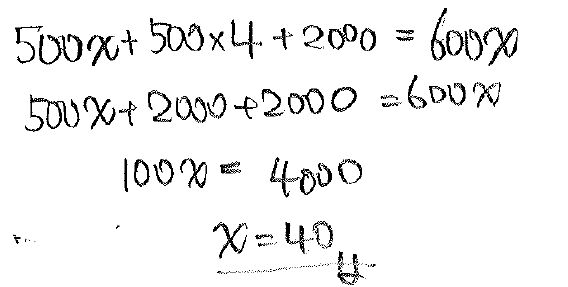 500x + 500×4 + 2000 = 600x
500x + 2000 + 2000 = 600x
100x = 4000
x = 40